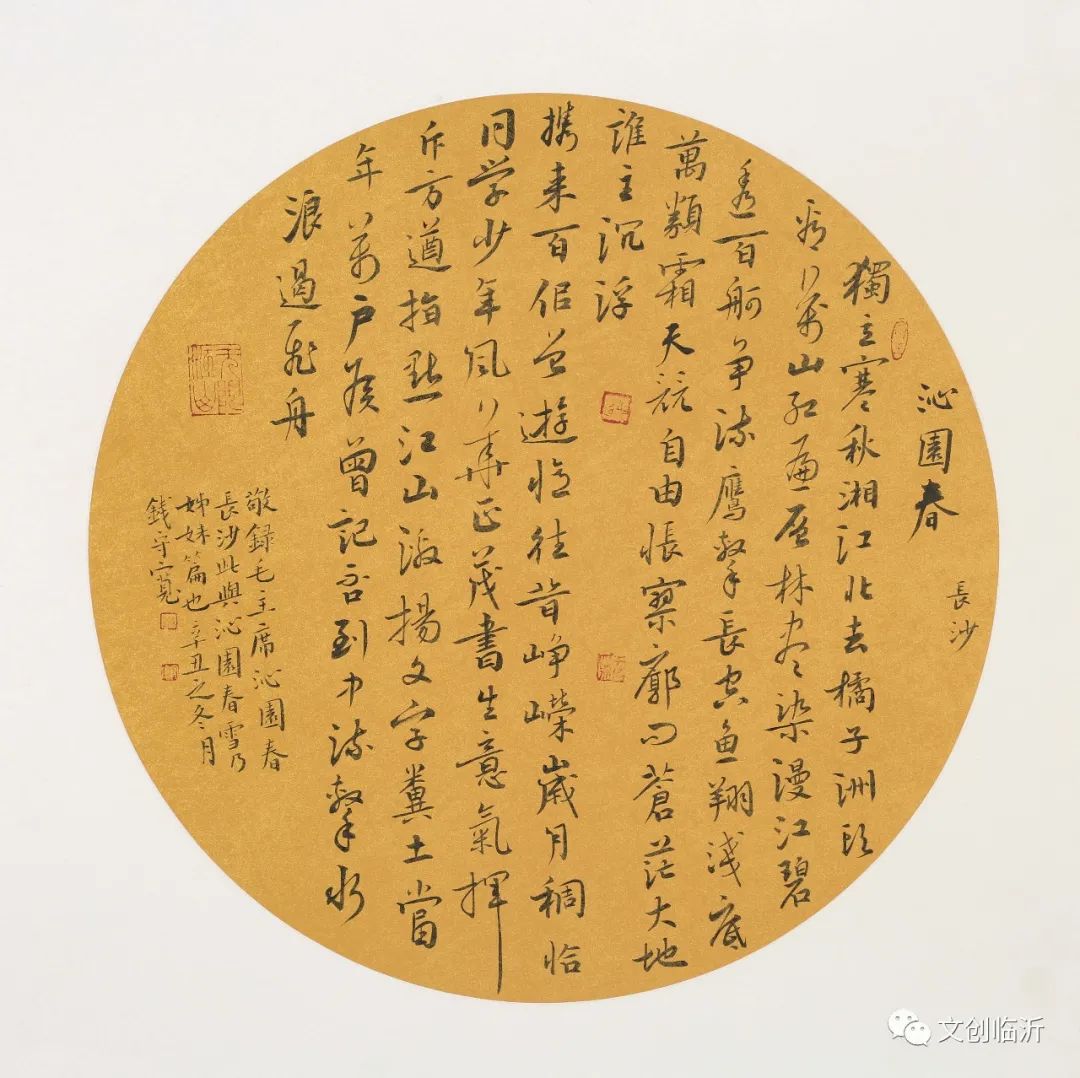 沁園春
長沙
獨立寒秋湘江北去橘子洲頭
看萬山紅遍層林盡染漫江碧
透百舸争流鷹擊長空魚翔淺底
萬類霜天競自由悵寥廓問蒼茫大地
誰主沉浮
攜来百侣曾遊憶往昔峥嶸歲月稠恰
同学少年風華正茂書生意氣揮
斥方遒指點江山激揚文字糞土當
年萬户侯曾記否到中流擊水
浪遏飛舟
敬録毛主席沁園春
長沙此與沁園春雪乃
姊妹篇也辛丑之冬月
錢守寬
文创临沂